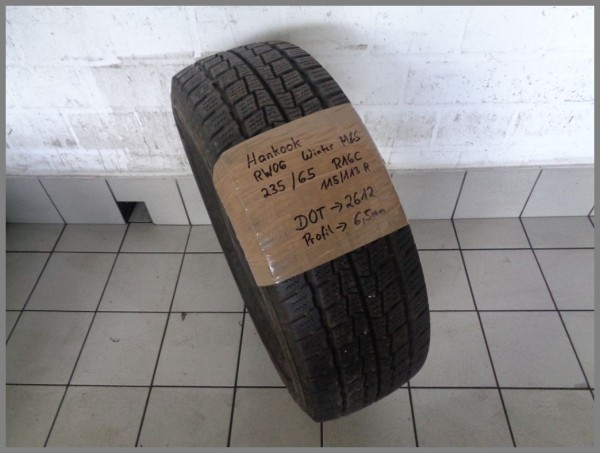 Hankook
RW06 Winter M&S
235/65 R16C
115/113 R
DOT → 2612
Profil → 6,5mm